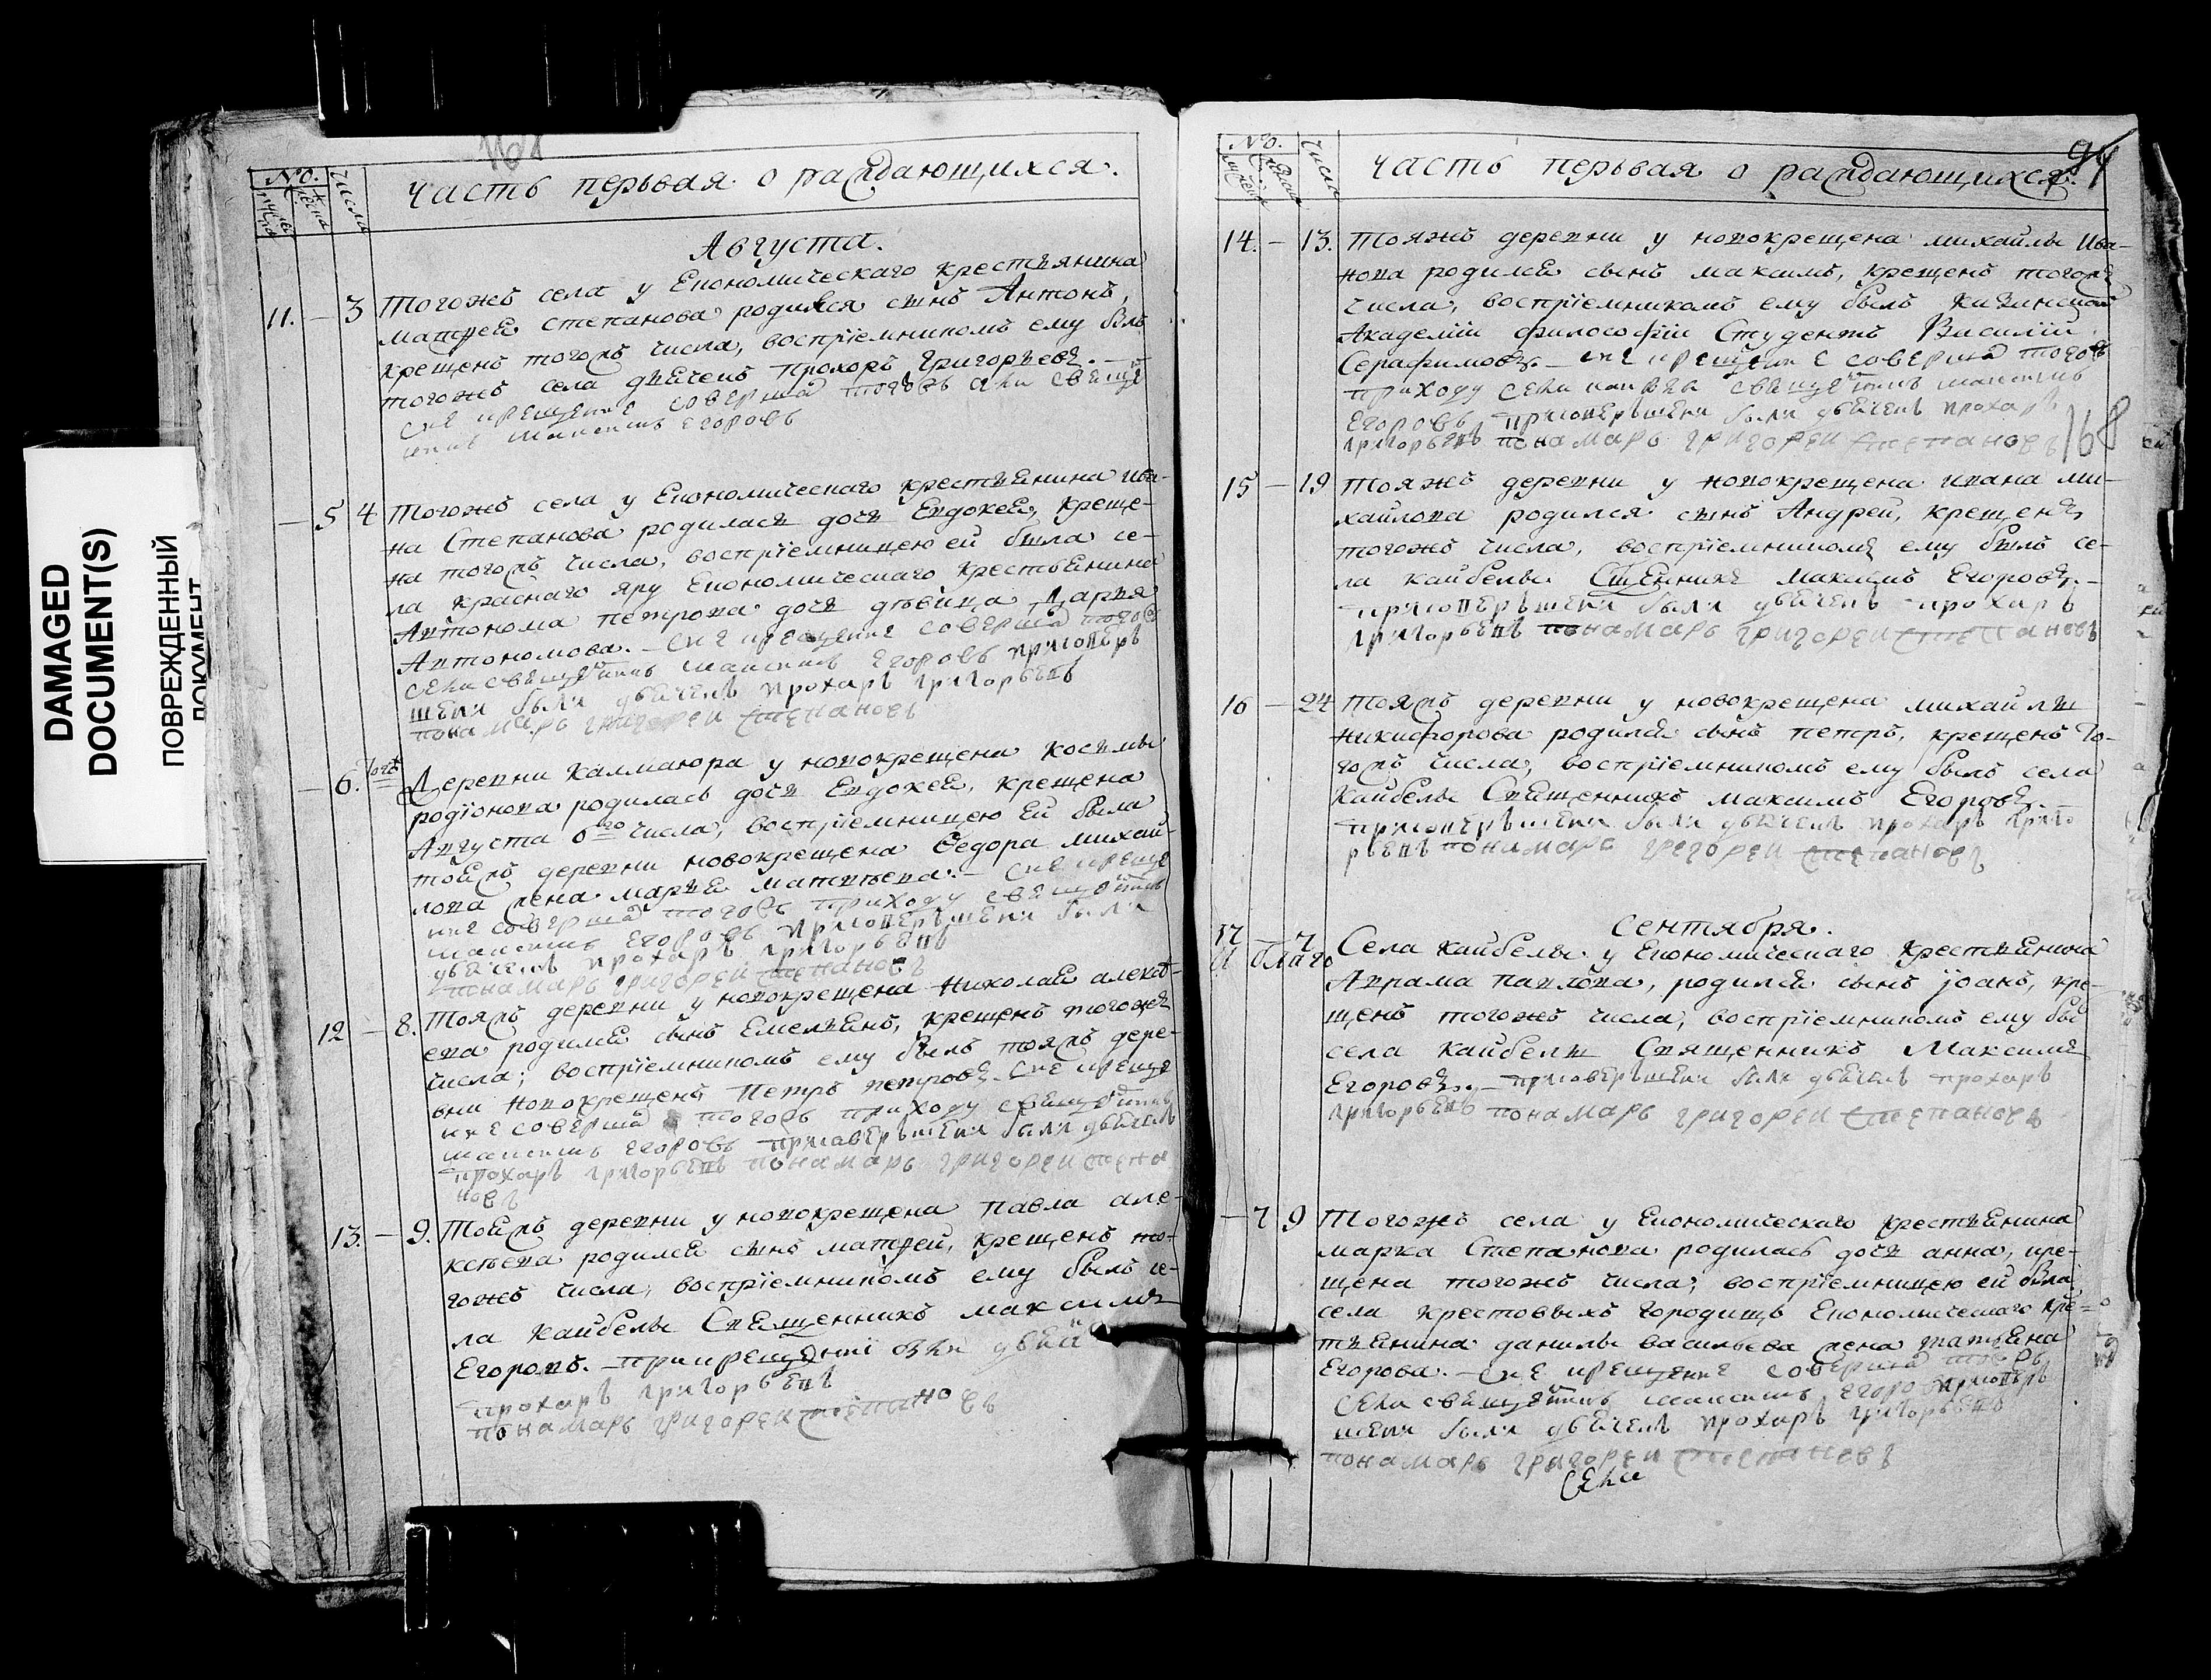 DAMAGED
DOCUMENT(S)
ПОВРЕЖДЕННЫЙ
ДОКУМЕНТ
No. числа
часть первая о раждающихся.
Августа.
11. — 3 Тогожъ села у Економическаго крестьянина
Матфея Степанова родился сынъ Антонъ,
крещенъ тогожъ числа, воспріемникомъ ему былъ
тогожъ села дьячекъ Прохоръ Григорьевъ. —
сие крещение соверша тогожъ села свеще
никъ максимъ Егоровъ
— 5 4 Тогожъ села у Економическаго крестьянина Ива-
на Степанова родилась дочь Евдокея, креще-
на тогожъ числа, воспріемницею ей была се-
ла Краснаго яру Економическаго крестьянина
Автонома петрова дочь дѣвица Дарья
Автономова. — Сие крещение соверша тогожъ
села свещеникъ максимъ Егоровъ присовер
шени были дьячекъ прохаръ григорьевъ
понамарь григореи степановъ
— 6. Тогож Деревни Калмаюра у новокрещена косьмы
родіонова родилась дочь Евдокея, крещена
Августа 6го числа, воспріемницею ей была
тояжъ деревни новокрещена Федора михай-
лова жена Марья матвеева. — Сие креще
ние соверша тогожъ приходу свещеникъ
максимъ Егоровъ присовершени были
дьячекъ прохаръ григорьевъ
понамарь григореи степановъ
12 — 8. Тояжъ деревни у новокрещена Николая алексѣ-
ева родился сынъ Емельянъ, крещенъ тогожъ
числа; воспріемникомъ ему былъ тояжъ дере-
вни новокрещенъ Петръ петровъ. Сие креще
ние соверша тогожъ приходу свещеникъ
максимъ Егоровъ присовершени были дьячекъ
прохаръ григорьевъ понамарь григореи степа
новъ
13. — 9. Тояжъ деревни у новокрещена Павла але-
ксѣева родился сынъ матфей, крещенъ то-
гожъ числа, воспріемникомъ ему былъ се-
ла Кайбелы Священникъ Максимъ
Егоровъ. — при крещениі былъ дьячекъ
прохаръ григорьевъ
понамарь григореи степановъ
94
No. числа
часть первая о раждающихся.
14. — 13. Тояжъ деревни у новокрещена михайлы Ива-
нова родился сынъ максимъ, крещенъ тогожъ
числа, воспріемникомъ ему былъ Казанской
Академіи философіи Студентъ Василій
Серафимовъ. — сие крещение соверша тогожъ
приходу села свещеникъ максимъ
Егоровъ присовершени были дьячекъ прохаръ
григорьевъ понамарь григореи степановъ
168
15 — 19 Тояжъ деревни у новокрещена ивана ми-
хайлова родился сынъ Андрей, крещенъ
тогожъ числа, воспріемникомъ ему былъ се-
ла кайбелы Сщенникъ Максимъ Егоровъ. —
присовершени были дьячекъ прохаръ
григорьевъ понамарь григореи степановъ
16 — 24 Тояжъ деревни у новокрещена михайлы
Никифорова родился сынъ петръ, крещенъ то-
гожъ числа, воспріемникомъ ему былъ села
Кайбелы Священникъ максимъ Егоровъ.
присовершени были дьячекъ прохаръ григо
рьевъ понамарь григореи степановъ
Сентября.
17 — 7 Села Кайбелы у Економическаго крестьянина
Аврама павлова, родился сынъ іоанъ, кре-
щенъ тогожъ числа, воспріемникомъ ему бы
села Кайбелы Священникъ Максимъ
Егоровъ. — присовершени были дьячекъ прохаръ
григорьевъ понамарь григореи степановъ
— 7 9 Тогожъ села у Економическаго крестьянина
марка Степанова родилась дочь анна, кре-
щена тогожъ числа; воспріемницею ей была
села крестовыхъ городищъ Економическаго кре-
тьянина данилы васильева жена татьяна
Егорова. — Сие крещение соверша тогожъ
села свещеникъ максимъ егоро присовер
шени были дьячекъ прохаръ григорьевъ
понамарь григореи степановъ
села